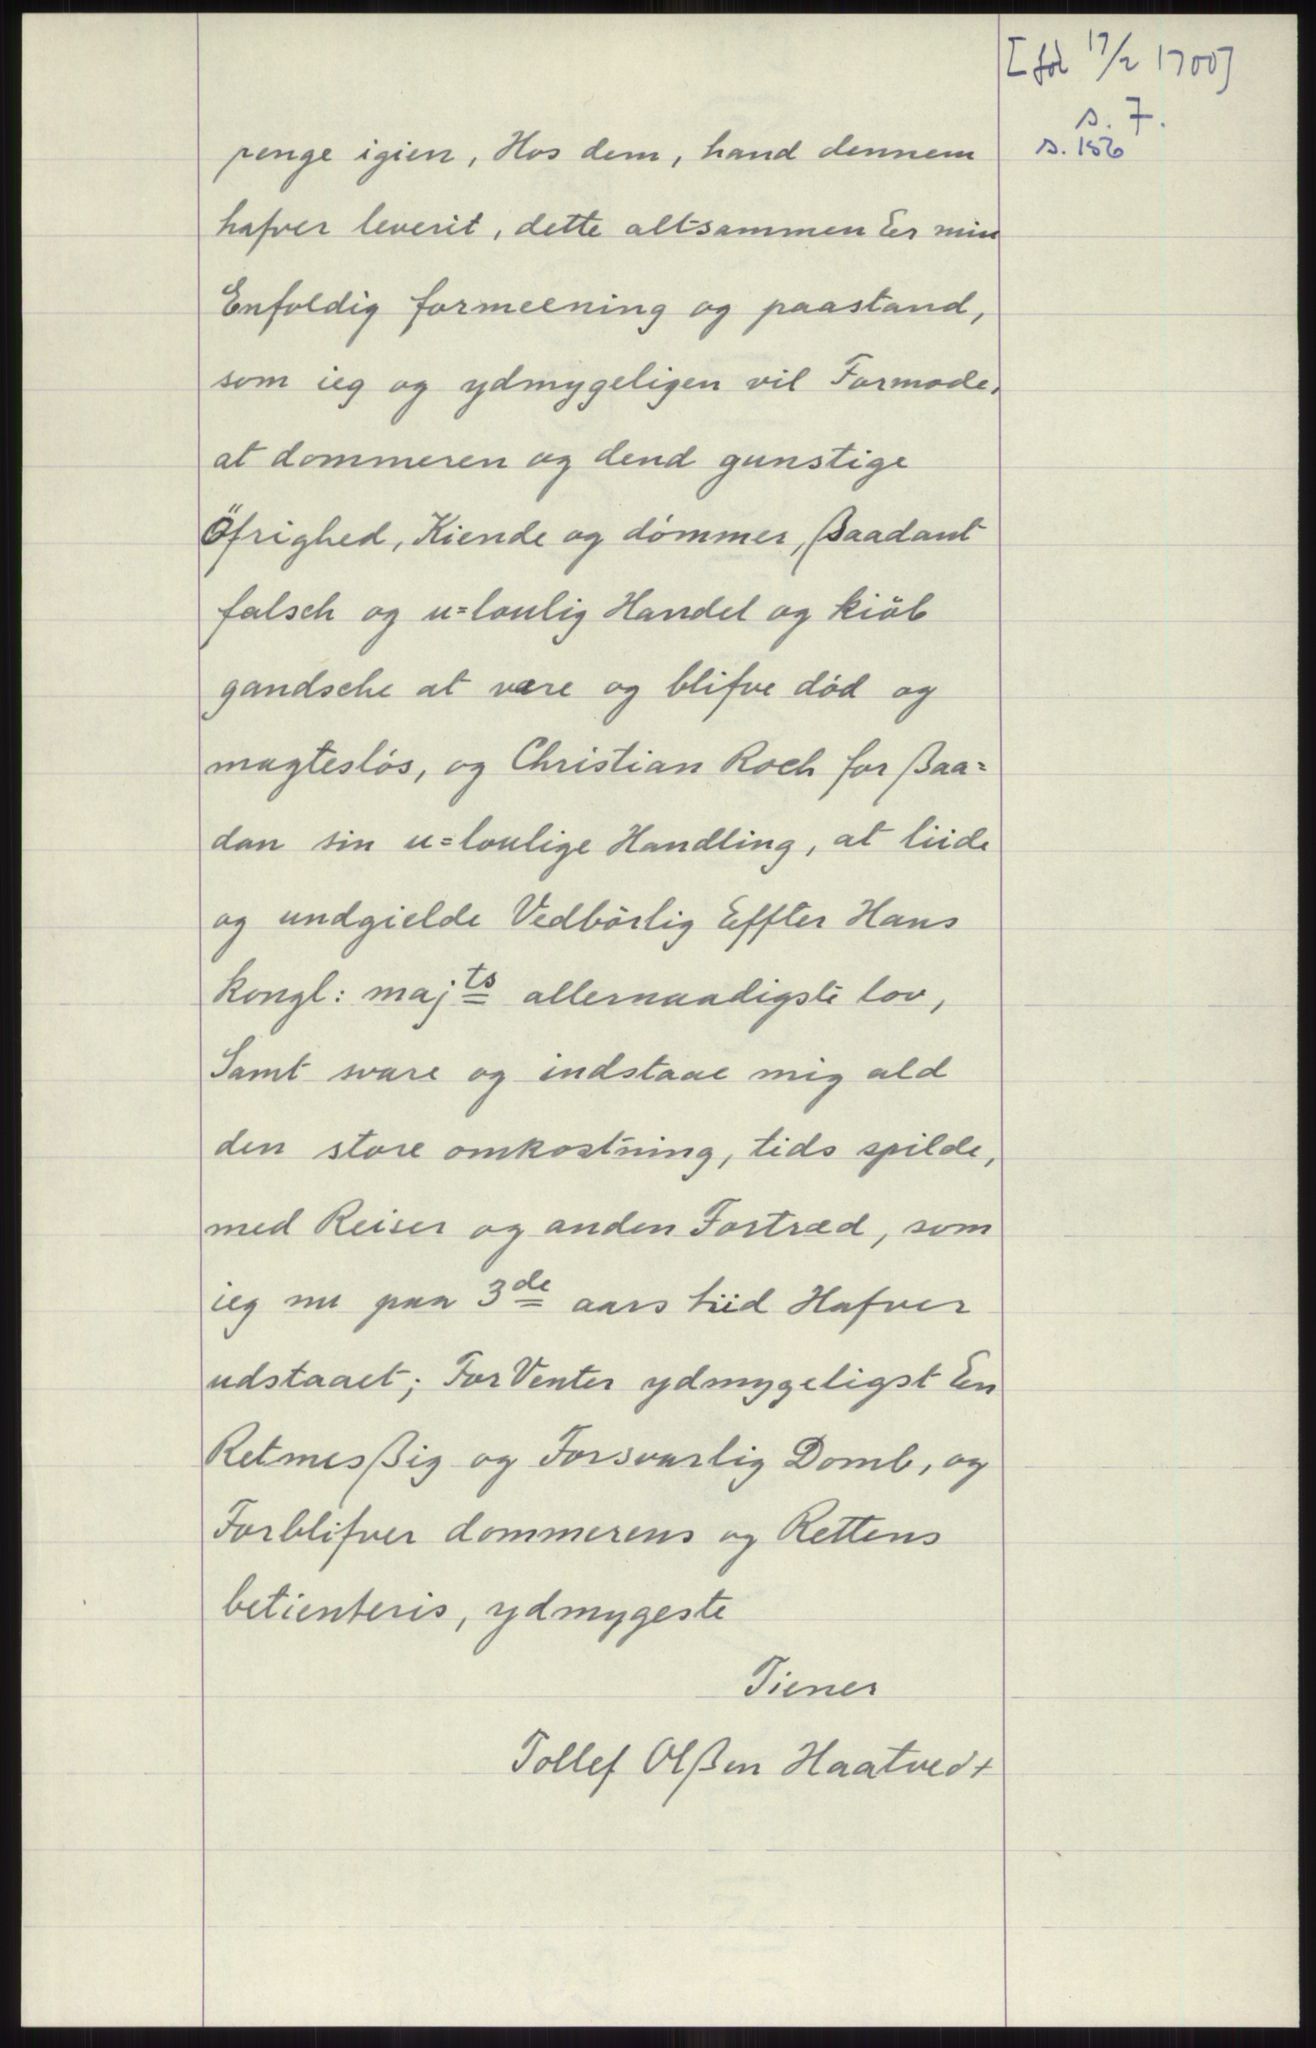 [før 17/2 1700]
s. 7.
s. 156
penge igien, Hos dem, hand dennem
hafver leverit, dette alt sammen Er min
Enfoldig formeening og paastand,
som ieg og ydmygeligen vil Formode,
at dommeren og dend gunstige
Öfrighed, Kiende og dómmer, ßaadant
falsch og u=loulig Handel og kiöb
gandsche at være og blifve död og
magteslös, og Christian Roch for ßaa=
dan sin u=loulige Handling, at liide
og undgielde Vedbörlig Effter Hans
kongl: maj ts allernaadigste lov,
Samt svare og indstaae mig ald
den store omkostning, tids spilde,
med Reiser og anden Fortræd, som
ieg nu paa 3 de aars tiid Hafver
udstaaet; ForVenter ydmygeligst En
Retmesßig og Forsvarlig Domb, og
Forblifver dommerens og Rettens
betienteris, ydmygeste
Tiener
Tollef Olßen Haatvedt